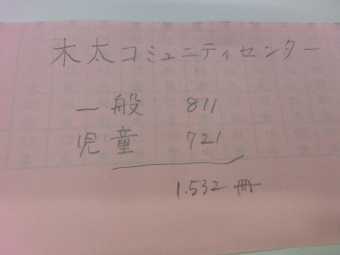 木太コミュニティセンター
一般 811
児童 721
1.532冊